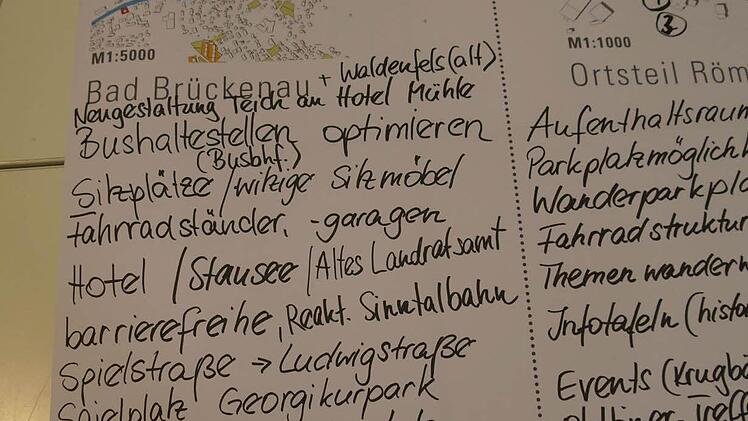 M1:5000
Bad Brückenau + Waldenfels (alt)
Neugestaltung Teich am Hotel Mühle
Bushaltestellen optimieren
(Busbhf.)
Sitzplätze / witzige Sitzmöbel
Fahrradständer, -garagen
Hotel / Stausee / Altes Landratsamt
barrierefreihe, Reakt. Sinntalbahn
Spielstraße → Ludwigstraße
Spielplatz Georgikurpark
3
M1:1000
Ortsteil Röm
Aufenthaltsraum
Parkplatzmöglichk
Wanderparkpla
Fahrradstruktur
Themenwanderw
Infotafeln (histo
Events (Krugba